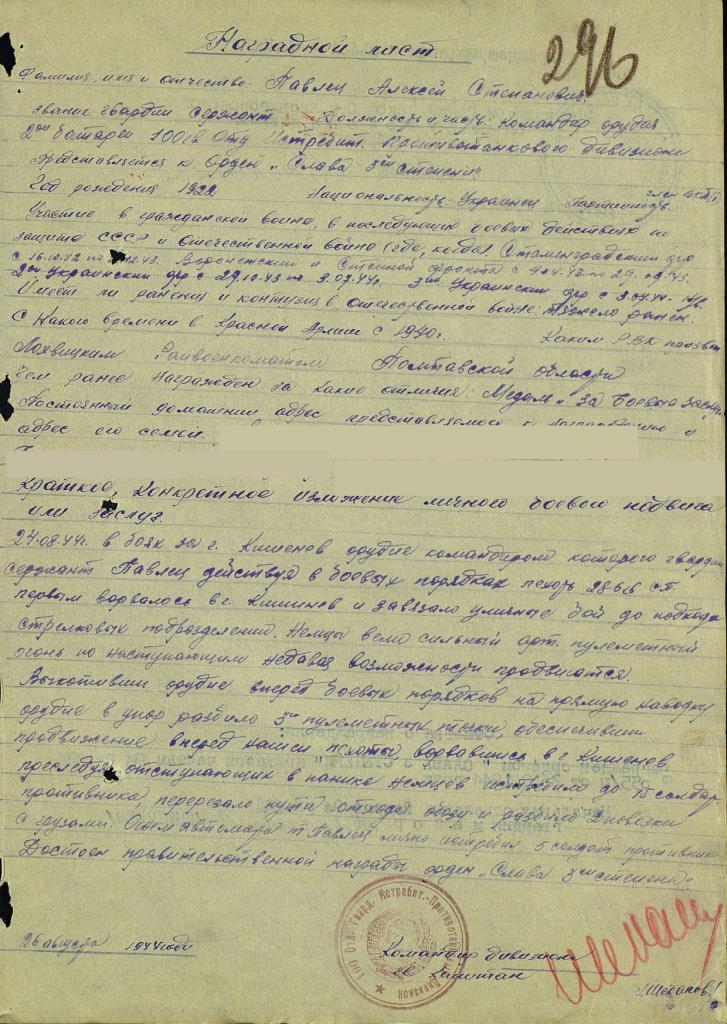 Наградной лист
296
Фамилия, имя и отчество: Павлец Алексей Степанович.
Звание: гвардии сержант Должность и часть: командир орудия
2ой батареи 100 гв Отд Истребит. Противотанкового дивизиона
Представляется к Орден „Слава 3ей степени“
Год рождения 1922 Национальность: Украинец Партийность
Участие в гражданской войне, в последующих боевых действиях по
защите СССР и Отечественной войне (где, когда) Сталинградский
с 16.10.42 по Воронежский и Степной фронта с
2ой Украинский фр с 29.10.43 по 9.07.44г. 3ий Украинский фр с
Имеет ли ранения и контузия в отечественной войне: тяжело ранен.
С какого времени в Красной Армии с 1940г. Каким РВК призван
Лохвицким Райвоенкоматом Полтавской области
Чем ранее награжден за какие отличия: Медаль „За Боевые
Постоянный домашний адрес представляемого к и
адрес его семьи.
Краткое, конкретное изложение личного боевого подвига
или заслуг.
24.08.44г. в боях за г. Кишенев орудие командиром которого гвардии
сержант Павлец действуя в боевых порядках пехоты СП.
первым ворвалось в г. Кишинев и завязало уличные бой до подхода
стрелковых подразделений. Немцы вели сильный арт. пулеметный
огонь по наступающим недавая возможности продвигатся.
Выкотивши орудие вперед боевых порядков на прямую наводку
орудие в упор разбило 3и пулеметных точки, обеспечивши
продвижение вперед нашей пехоты, ворвавшись в г. Кишенев,
преследуя отступающих в панике немцев истребило до 15 солдат
противника, перерезало пути отхода обозу и разбило 2 повозки
с грузами. Огнем автомата т Павлец лично истребил 5 солдат противника
Достоен правительственной награды орден „Слава 3ей степени“.
26 августа 1944 года
Командир дивизиона
гв капитан
100 Отд. Гвард. Истребит.-Противотанк. Дивизион